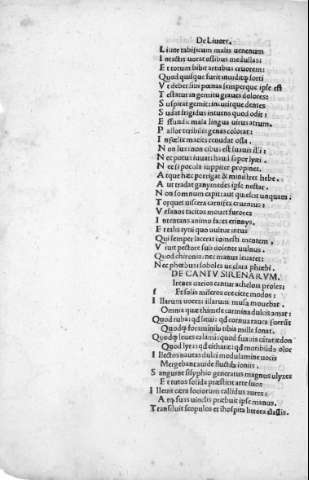 De Liuore.
Liuor tabificum malis uenenum
Intactis uorat ossibus medullas:
Et totum bibit artubus cruorem:
Quod quisque furit inuidet sorti
Vt debet sibi poenas semper ipse est
Testatur in gemitu graues dolores:
Suspirat gemit: incutitque dentes
Sudat frigidus intuens quod odit:
Effundit mala lingua uirus atrum.
Pallor terribilis genas colorat:
Infœlix macies renudat ossa.
Non lux non cibus est suauis illi:
Nec potus iuuat: haud sapor lyæi.
Nec si pocula Iuppiter propinet.
Atque hæc porrigat & ministret hebe.
Aut tradat ganymedes ipse nectar.
Non somnum capit: aut quiescit unquam.
Torquet uiscera carnifex cruentus:
Vesanos tacitos mouet furores
Intentans animo faces erinnys.
Est titii uultur intus
Qui semper lacerat comestque mentem,
Viuit pectore sub dolente uulnus.
Quod chironia nec manus leuaret:
Nec phœbus soboles ue clara phœbi.
DE CANTV SIRENARVM.
Irenes uarios cantus acheloia proles:
f Et solitæ miseros ore ciere modos:
Illarum uoces: illarum musa mouebat.
Omnia quæ thimele carmina dulcis amat:
Quod tuba: quod litui: quod cornua rauca
Quodque foraminibus tibia mille sonat.
Quodque leues calami: quod suauis
Quod lyra: quod citharæ: quod moribundus olor
Illectos nautas dulci modulamine uocis
Mergebant auidæ fluctibus ioniis.
Sanguine sisyphio generatus magnus ulyxes
Et tutos solida præstitit arte suos
Illeuit cæra sociorum callidus aures:
Atque suas uinclis præbuit ipse manus.
Transiluit scopulos et ihospita littora classis.